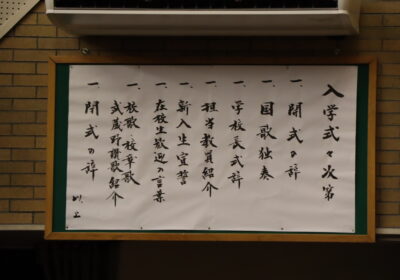 入学式々次第
一、開式の辞
一、国歌独奏
一、学校長式辞
一、担当教員紹介
一、新入生宣誓
一、在校生歓迎の言葉
一、校歌・校章歌
武蔵野讃歌紹介
一、閉式の辞
以上